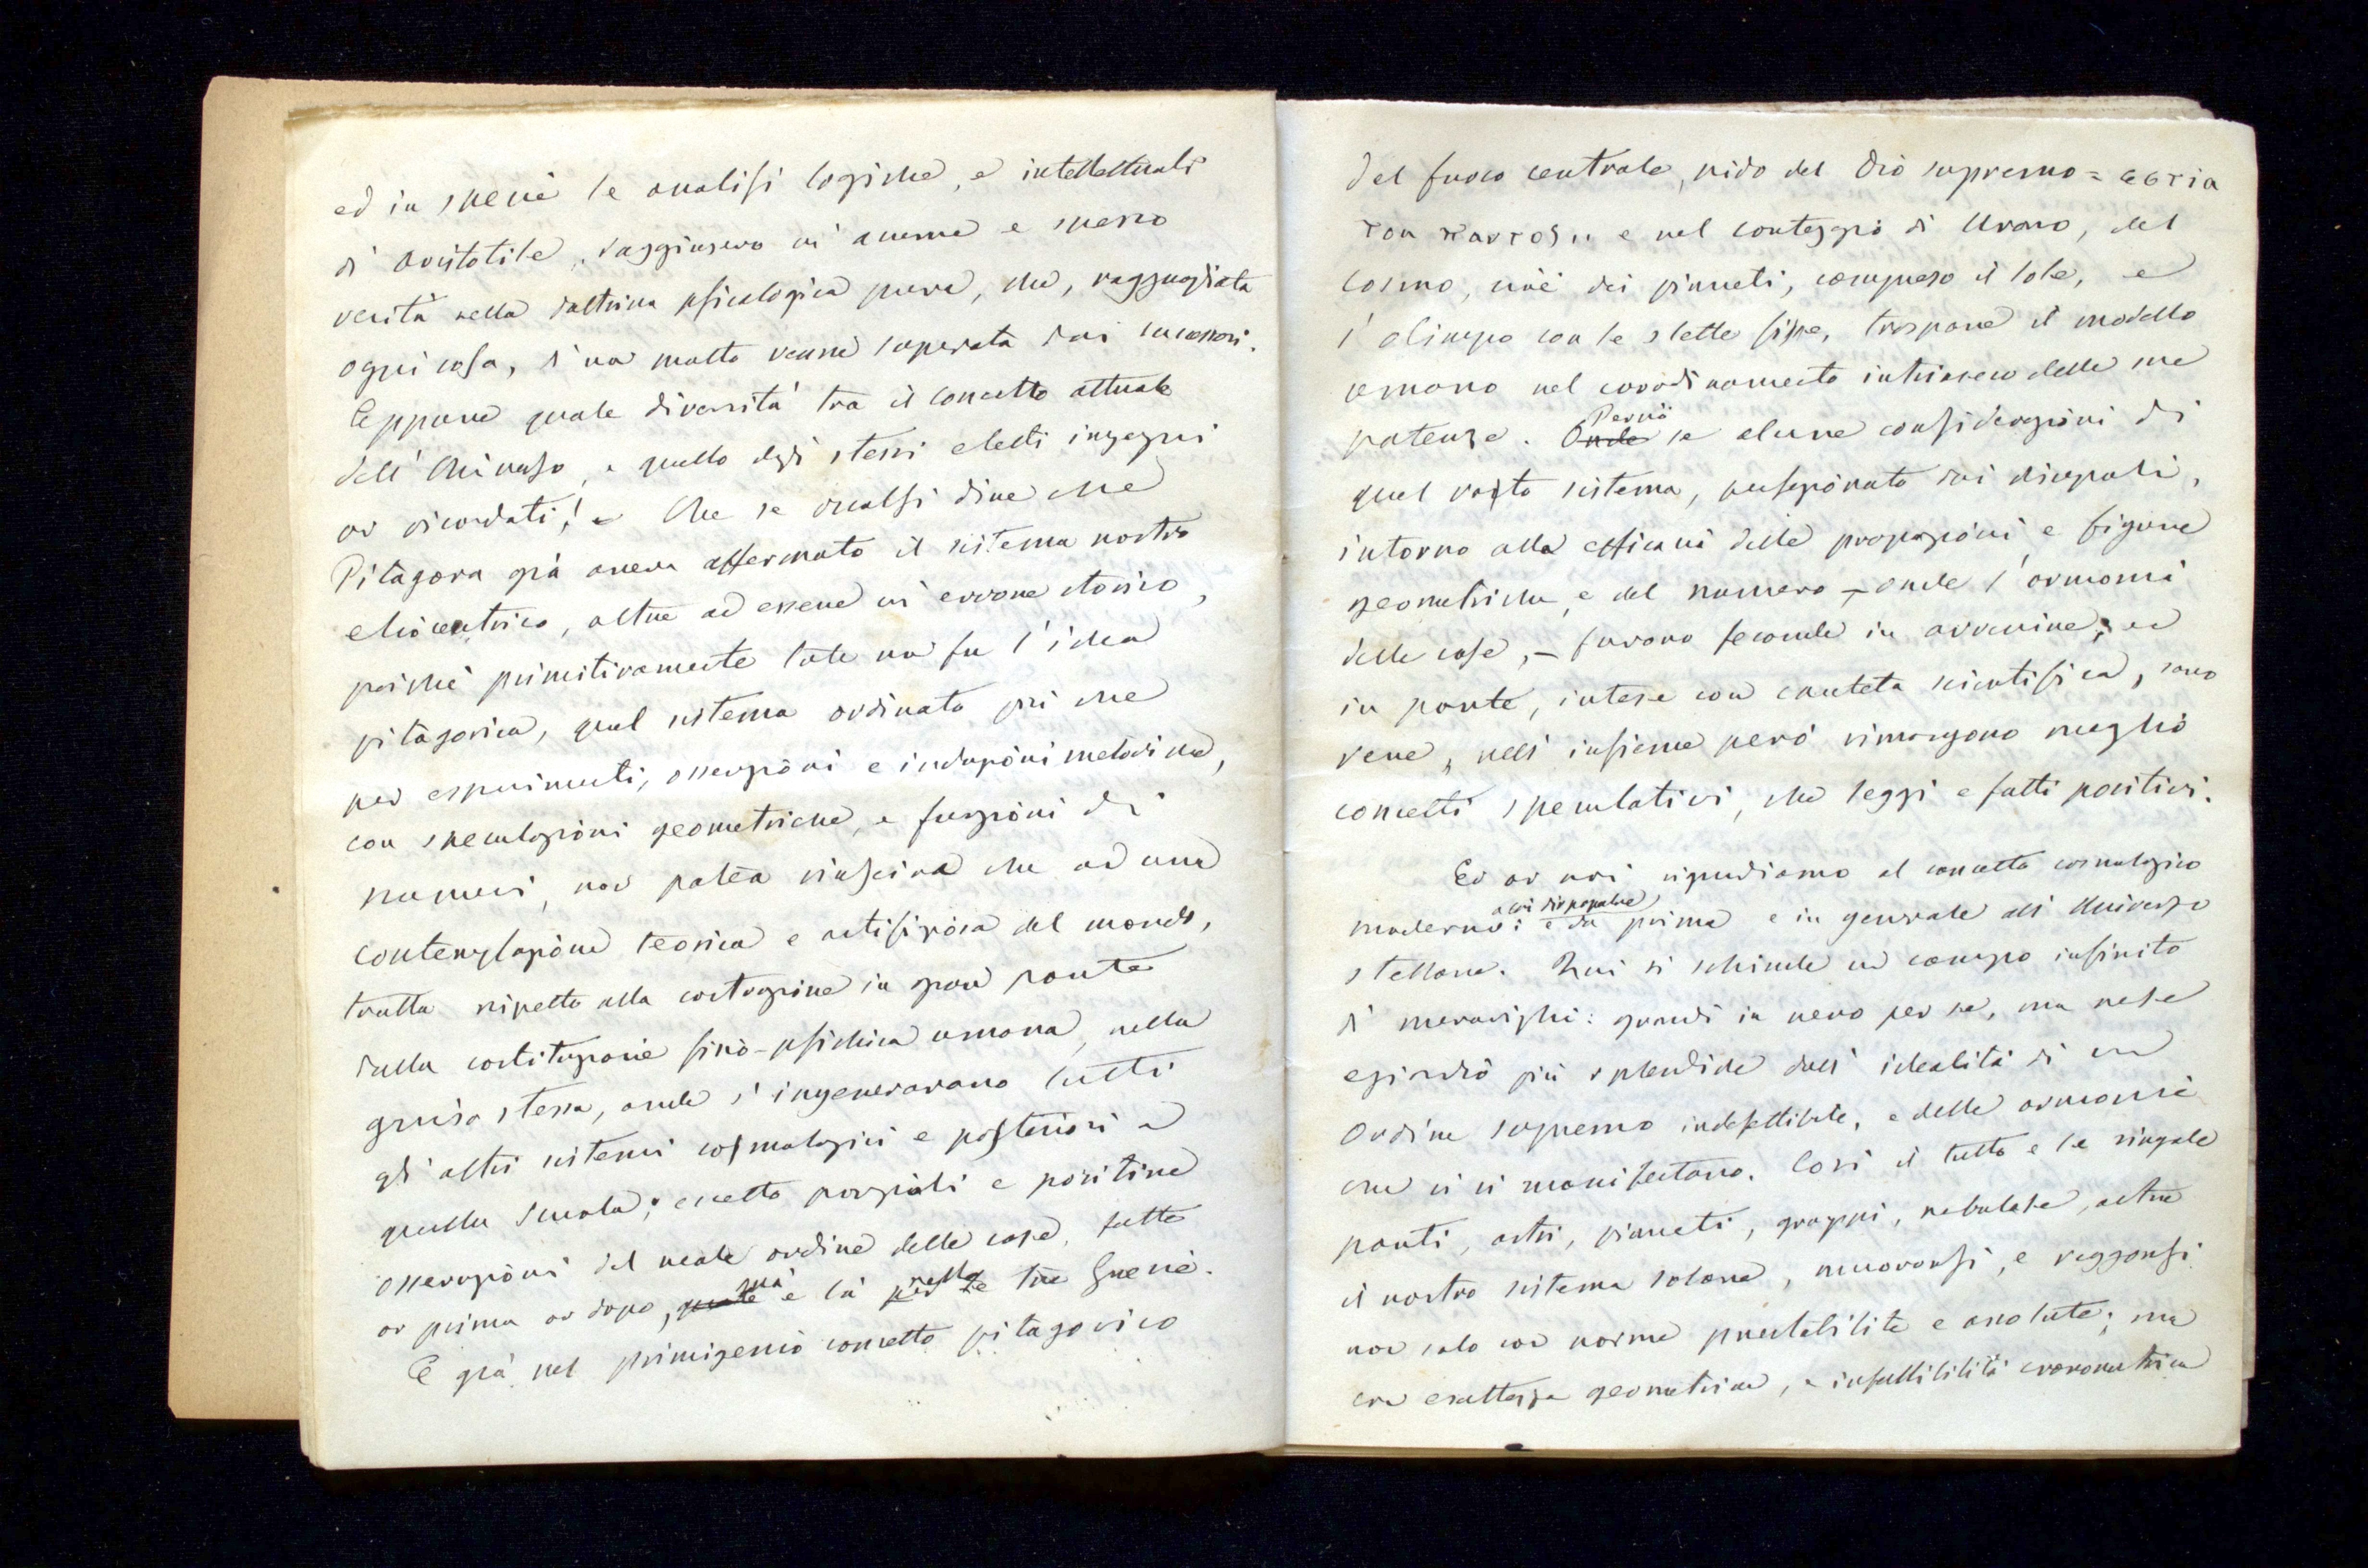 ed in specie le analisi logiche, e intellettuali
di Aristotile, raggiunsero un' acume e spesso
verità nella dottrina psicologica pura, che, ragguagliata
ogni cosa, di non molto venne superata dai successori.
Eppure quale diversità tra il concetto attuale
dell' Universo, e quello degli stessi eletti ingegni
or ricordati! – Che se dicalsi dire che
Pitagora già aveva affermato il sistema nostro
eliocentrico, oltre ad essere un' errore storico,
poichè primitivamente tale non fu l' idea
pitagorica, quel sistema ordinato più che
per esperimenti, osservazioni e induzioni metodiche,
con speculazioni geometriche, e funzioni di
numeri, non potea riuscire che ad una
contemplazione teorica e artifiziosa del mondo,
tratta rispetto alla costruzione in gran parte
dalla costituzione fisio-psichica umana, nella
guisa stessa, onde s' ingeneravano tutti
gli altri sistemi cosmologici e posteriori a
quella Scuola; eccetto parziali e positive
osservazioni del reale ordine delle cose, fatte
or prima or dopo, quà e là nelle tre Grecie.
E già nel primigenio concetto pitagorico
del fuoco centrale, nido del Dio supremo = εστια
του παντος,, e nel conteggio di Urano, del
Cosmo, cioè dei pianeti, compreso il Sole, e
l' Olimpo con le stelle fisse, traspare il modello
umano nel coordinamento intrinseco delle sue
potenze. Perciò se alcune considerazioni di
quel vasto sistema, perfezionato dai discepoli,
intorno alla efficacia delle proporzioni, e figure
geometriche, e del numero – onde l' armonia
delle cose, – furono feconde in avvenire; ed
in parte, intese con cautela scientifica, sono
vere, nell' insieme però rimangono meglio
concetti speculativi, che leggi e fatti positivi.
Ed or noi riguardiamo al concetto cosmologico
moderno: e da prima e in generale all' Universo
stellare. Qui si schiude un campo infinito
di meraviglie: grandi in vero per se, ma rese
eziandio più splendide dall' idealità di un
Ordine supremo indefettibile, e delle armonie
che vi si manifestano. Così il tutto e le singole
parti, astri, pianeti, gruppi, nebulose, oltre
il nostro sistema solare, muovonsi, e reggonsi
non solo con norme prestabilite e assolute; ma
con esattezza geometrica, e infallibilità cronometrica